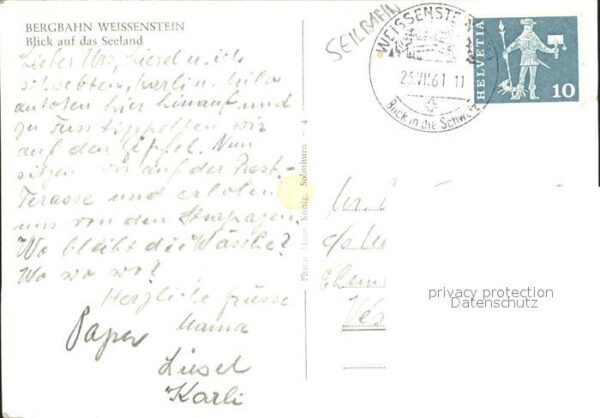 BERGBAHN WEISSENSTEIN
Blick auf das Seeland
Lieber Urs, Liesel u. ich
schwebten, Karli u. Hilda
autoten hier hinauf und
zu Fuss tippelten wir
auf den Gipfel. Nun
sitzen wir auf der Rest.-
Terasse und erholen
uns von den Strapazen.
Wo bleibt die Wäsche?
Wo wo wo?
Herzliche Grüsse
Mama
Papa
Liesel
Karli
Photo Hans König, Solothurn - 4
SEILBAHN
WEISSENSTEIN
23.VII.61 11
Blick in die Schweiz
HELVETIA
10
privacy protection
Datenschutz